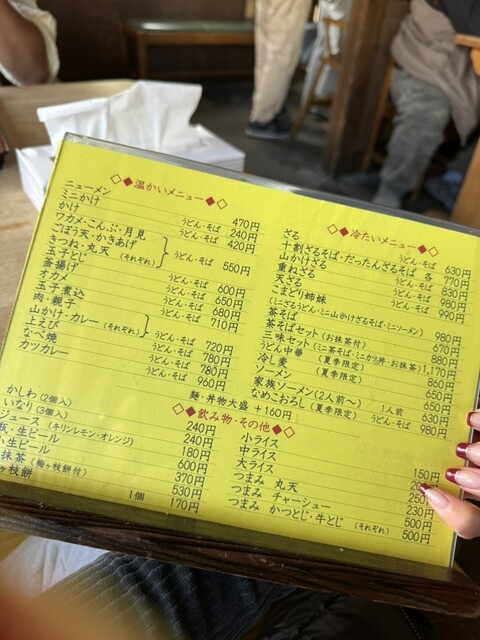 ◇◆温かいメニュー◆◇
ニューメン 470円
ミニかけ うどん・そば 240円
かけ うどん・そば 420円
ワカメ・こんぶ・月見
ごぼう天・かきあげ
きつね・丸天 (それぞれ) うどん・そば 550円
玉子とじ うどん・そば 600円
釜揚げ うどん・そば 650円
オカメ うどん・そば 680円
玉子煮込 うどん・そば 710円
肉・親子
山かけ・カレー (それぞれ) うどん・そば 720円
上えび うどん・そば 780円
なべ焼 うどん・そば 780円
カツカレー うどん・そば 960円
麺・丼物大盛 +160円
◇◆冷たいメニュー◆◇
ざる うどん・そば 630円
十割ざるそば・だったんざるそば 各 770円
山かけざる うどん・そば 830円
重ねざる うどん・そば 980円
天ざる うどん・そば 990円
こまどり姉妹
(ミニざるうどん・ミニ山かけざるそば・ミニソーメン) 980円
茶そば 670円
茶そばセット (お抹茶付) 880円
三味セット (ミニ茶そば・ミニカツ丼・お抹茶) 1,170円
うどん中華 (夏季限定) 860円
冷し麦 (夏季限定) 650円
ソーメン 650円
家族ソーメン (2人前〜) 1人前 630円
なめこおろし (夏季限定) うどん・そば 980円
◇◆飲み物・その他◆◇
かしわ (2個入) 240円
いなり (3個入) 240円
ジュース (キリンレモン・オレンジ) 180円
生ビール 600円
小生ビール 370円
抹茶 (梅ヶ枝餅付) 530円
ヶ枝餅 1個 170円
小ライス 150円
中ライス
大ライス
つまみ 丸天 230円
つまみ チャーシュー 500円
つまみ かつとじ・牛とじ (それぞれ) 500円